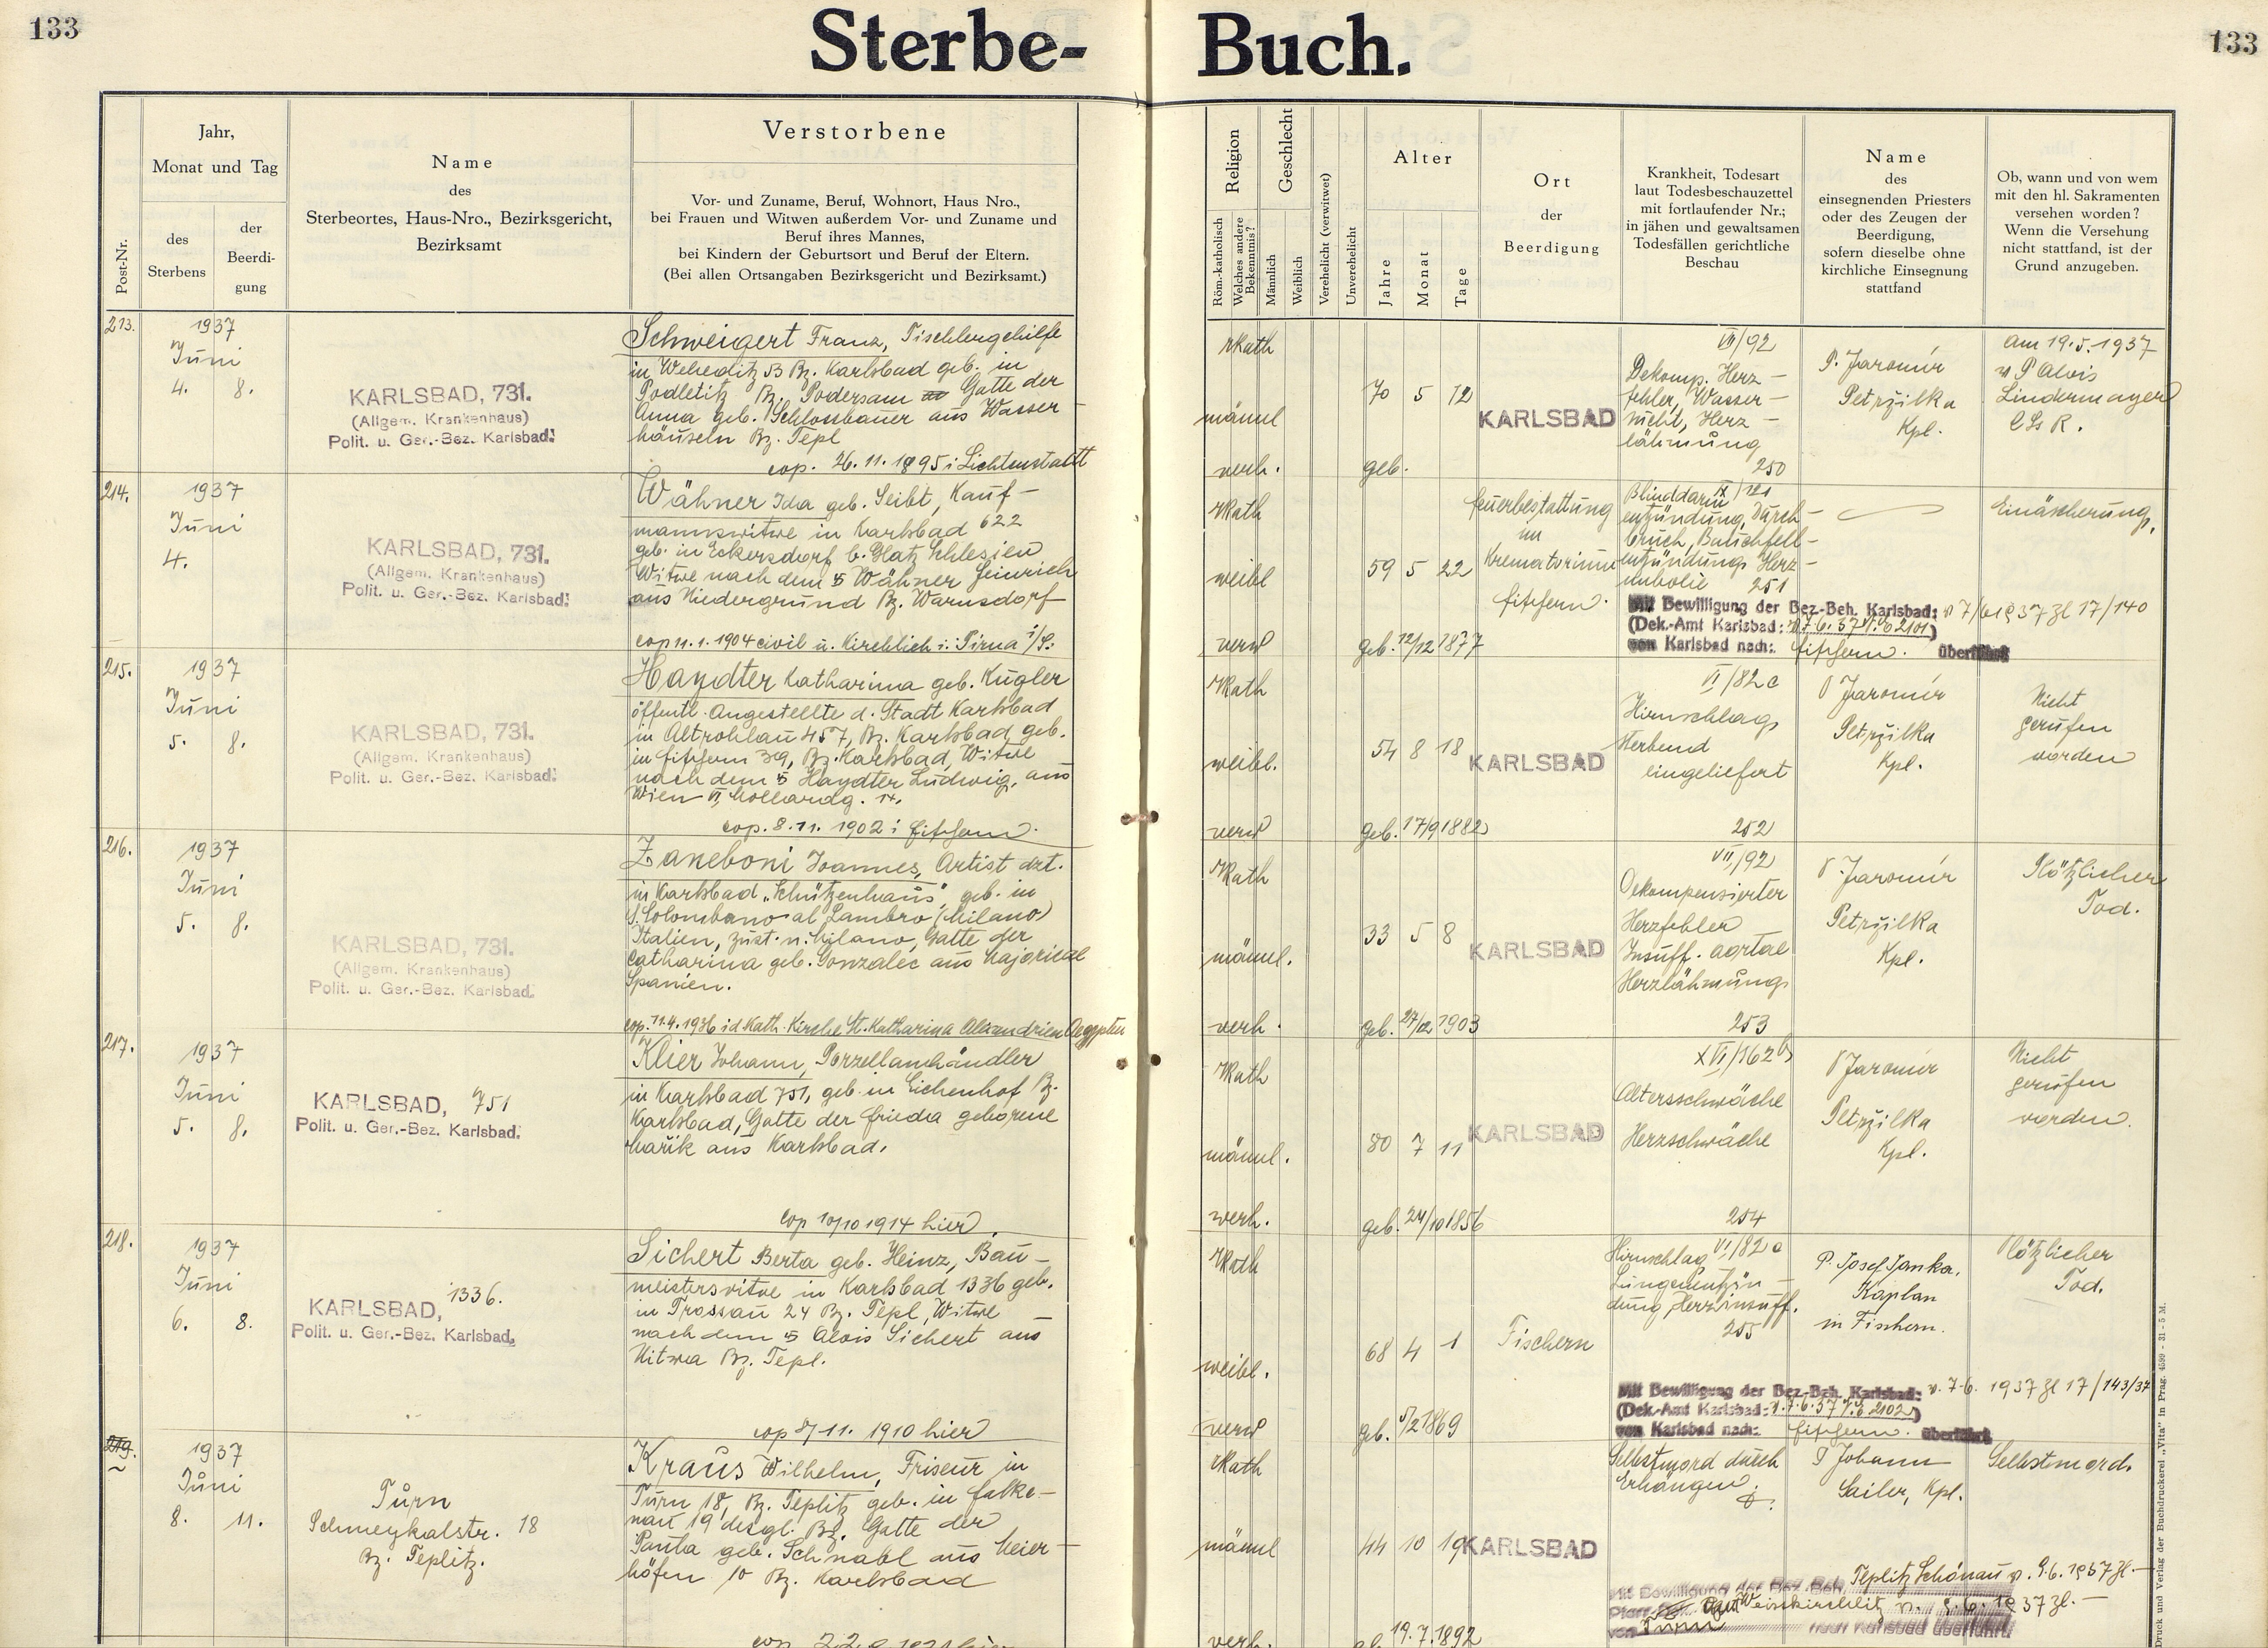 133
Sterbe-Buch.
133
Post-Nr.
Jahr,
Monat und Tag
des
Sterbens
der
Beerdi-
gung
Name
des
Sterbeortes, Haus-Nro., Bezirksgericht,
Bezirksamt
Verstorbene
Vor- und Zuname, Beruf, Wohnort, Haus Nro.,
bei Frauen und Witwen außerdem Vor- und Zuname und
Beruf ihres Mannes,
bei Kindern der Geburtsort und Beruf der Eltern.
(Bei allen Ortsangaben Bezirksgericht und Bezirksamt.)
Religion
Röm.-katholisch
Welches andere
Bekenntnis?
Geschlecht
Männlich
Weiblich
Verehelicht (verwitwet)
Unverehelicht
Alter
Jahre
Monat
Tage
Ort
der
Beerdigung
Krankheit, Todesart
laut Todesbeschauzettel
mit fortlaufender Nr.;
in jähen und gewaltsamen
Todesfällen gerichtliche
Beschau
Name
des
einsegnenden Priesters
oder des Zeugen der
Beerdigung,
sofern dieselbe ohne
kirchliche Einsegnung
stattfand
Ob, wann und von wem
mit den hl. Sakramenten
versehen worden?
Wenn die Versehung
nicht stattfand, ist der
Grund anzugeben.
213.
1937
Juni
4. 8.
KARLSBAD, 731.
(Allgem. Krankenhaus)
Polit. u. Ger.-Bez. Karlsbad.
Schweigert Franz, Tischlergehilfe
in Weheditz 53 Bz. Karlsbad geb. in
Podletitz Bz. Podersam Gatte der
Anna geb. Schlossbauer aus Wasser-
häuseln Bz. Tepl
cop. 26.11.1895 i Lichtenstadt
rkath
männl
verh.
70 5 12
geb.
KARLSBAD
VII/92
Dekomp. Herz-
fehler, Wasser-
sucht, Herz-
lähmung
250
P. Jaromír
Petržilka
Kpl.
am 19.5.1937
v P Alois
Lindermayer
C Ss R.
214.
1937
Juni
4.
KARLSBAD, 731.
(Allgem. Krankenhaus)
Polit. u. Ger.-Bez. Karlsbad.
Wähner Ida geb. Seibt, Kauf-
mannswitwe in Karlsbad 622
geb. in Eckersdorf b. Glatz Schlesien
Witwe nach dem Wähner Heinrich
aus Niedergrund Bz. Warnsdorf
cop 11.1.1904 civil u. kirchlich i. Pirna i/S.
rkath
weibl
verw
59 5 22
geb. 12/12 1877
Feuerbestattung
im
Krematorium
Fischern.
IX/121
Blinddarm
entzündung, Durch-
bruch, Bauchfell-
entzündung Herz-
embolie 251
Einäscherung.
Mit Bewilligung der Bez.-Beh. Karlsbad: v 7/6 1937 Zl 17/140
(Dek.-Amt Karlsbad: v 7.6.37 2101)
von Karlsbad nach: Fischern. überführt
215.
1937
Juni
5. 8.
KARLSBAD, 731.
(Allgem. Krankenhaus)
Polit. u. Ger.-Bez. Karlsbad.
Haydter Katharina geb. Kugler
öffentl. Angestellte d. Stadt Karlsbad
in Altrohlau 457, Bz. Karlsbad, geb.
in Fischern 39, Bz. Karlsbad, Witwe
nach dem Haydter Ludwig, aus
Wien VI, Mollardg. 14.
cop. 8.11. 1902 i Fischern.
rkath
weibl.
verw
54 8 18
geb. 17/9 1882
KARLSBAD
VI/82 c
Hirnschlag
sterbend
eingeliefert
252
P Jaromír
Petržilka
Kpl.
Nicht
gerufen
worden
216.
1937
Juni
5. 8.
KARLSBAD, 731.
(Allgem. Krankenhaus)
Polit. u. Ger.-Bez. Karlsbad.
Zaneboni Joannes, Artist dzt.
in Karlsbad „Schützenhaus", geb. in
S. Colombano al Lambro (Milano)
Italien, zust. n. Milano, Gatte der
Catharina geb. Gonzalec aus
Spanien.
cop. 11.4.1936 i d Kath. Kirche St. Katharina Alexandrien Aegypten
rkath
männl.
verh.
33 5 8
geb. 27/12 1903
KARLSBAD
VII/92
Dekompensierter
Herzfehler
Insuff. aortae
Herzlähmung
253
P. Jaromír
Petržilka
Kpl.
Plötzlicher
Tod.
217.
1937
Juni
5. 8.
KARLSBAD, 751
Polit. u. Ger.-Bez. Karlsbad.
Klier Johann, Porzellanhändler
in Karlsbad 751, geb. in Eichenhof Bz.
Karlsbad, Gatte der Frieda geborene
Mařik aus Karlsbad.
cop 10/10 1914 hier.
rkath
männl.
verh.
80 7 11
geb. 24/10 1856
KARLSBAD
XVI/162 b
Altersschwäche
Herzschwäche
254
P Jaromír
Petržilka
Kpl.
Nicht
gerufen
worden.
218.
1937
Juni
6. 8.
KARLSBAD, 1336.
Polit. u. Ger.-Bez. Karlsbad.
Sichert Berta geb. Heinz, Bau-
meisterswitwe in Karlsbad 1336 geb.
in Trossau 24 Bz. Tepl, Witwe
nach dem Alois Sichert aus
Uitwa Bz. Tepl.
cop 8/11. 1910 hier
rkath
weibl.
verw
68 4 1
geb. 5/2 1869
Fischern
Hirnschlag VI/82 a
Lungenentzün-
dung, Herzinsuff.
255
P. Josef Janka,
Kaplan
in Fischern.
Plötzlicher
Tod.
Mit Bewilligung der Bez.-Beh. Karlsbad: v. 7.6. 1937 Zl 17/143/37
(Dek.-Amt Karlsbad: v. 7.6.37 2102)
von Karlsbad nach: Fischern. überführt
219.
1937
Juni
8. 11.
Turn
Schmeykalstr. 18
Bz. Teplitz.
Kraus Wilhelm, Friseur in
Turn 18, Bz. Teplitz geb. in Falke-
nau 19 desgl. Bz. Gatte der
Paula geb. Schnabl aus Meier-
höfen 10 Bz. Karlsbad
rkath
männl
verh.
44 10 19
19.7.1892
KARLSBAD
Selbstmord durch
Erhängen.
P Johann
Sailer, Kpl.
Selbstmord.
Mit Bewilligung der Bez.-Beh. Teplitz Schönau v. 9.6.1937 Zl.—
Weisskirchlitz v. 1937 Zl.—
von Turn nach Karlsbad überführt.
Druck und Verlag der Buchdruckerei „Vita" in Prag. 4599 - 31 - 5 M.